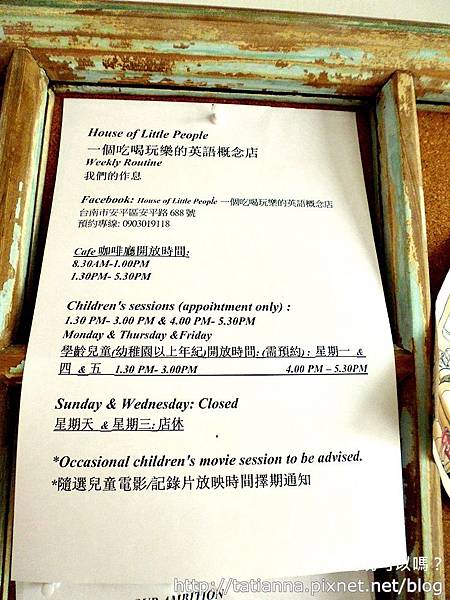 House of Little People
一個吃喝玩樂的英語概念店
Weekly Routine
我們的作息
Facebook: House of Little People 一個吃喝玩樂的英語概念店
台南市安平區安平路 688 號
預約專線: 0903019118
Cafe 咖啡廳開放時間:
8.30AM-1.00PM
1.30PM- 5.30PM
Children's sessions (appointment only) :
1.30 PM- 3.00 PM & 4.00 PM- 5.30PM
Monday & Thursday &Friday
學齡兒童(幼稚園以上年紀)開放時間: (需預約) : 星期一 &
四 & 五 1.30 PM- 3.00PM 4.00 PM – 5.30PM
Sunday & Wednesday: Closed
星期天 & 星期三: 店休
*Occasional children's movie session to be advised.
*隨選兒童電影/記錄片放映時間擇期通知
AMBITION
可以嗎？
http://tatianna.pixnet.net/blog